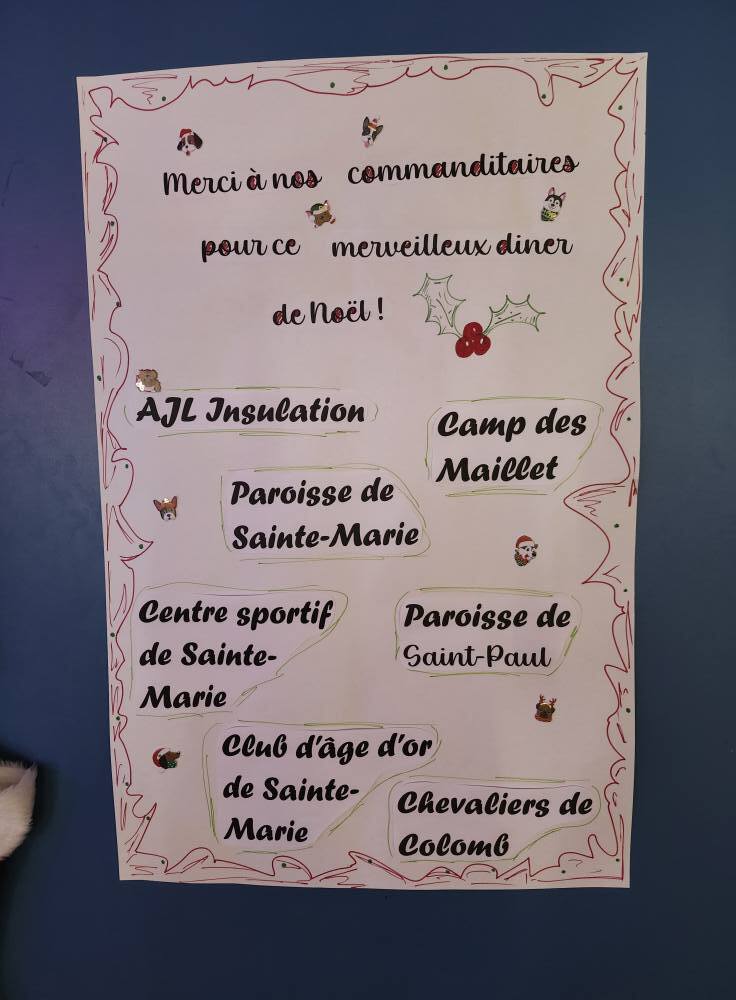 Merci à nos commanditaires
pour ce merveilleux diner
de Noël !
AJL Insulation
Camp des
Maillet
Paroisse de
Sainte-Marie
Centre sportif
de Sainte-
Marie
Paroisse de
Saint-Paul
Club d'âge d'or
de Sainte-
Marie
Chevaliers de
Colomb